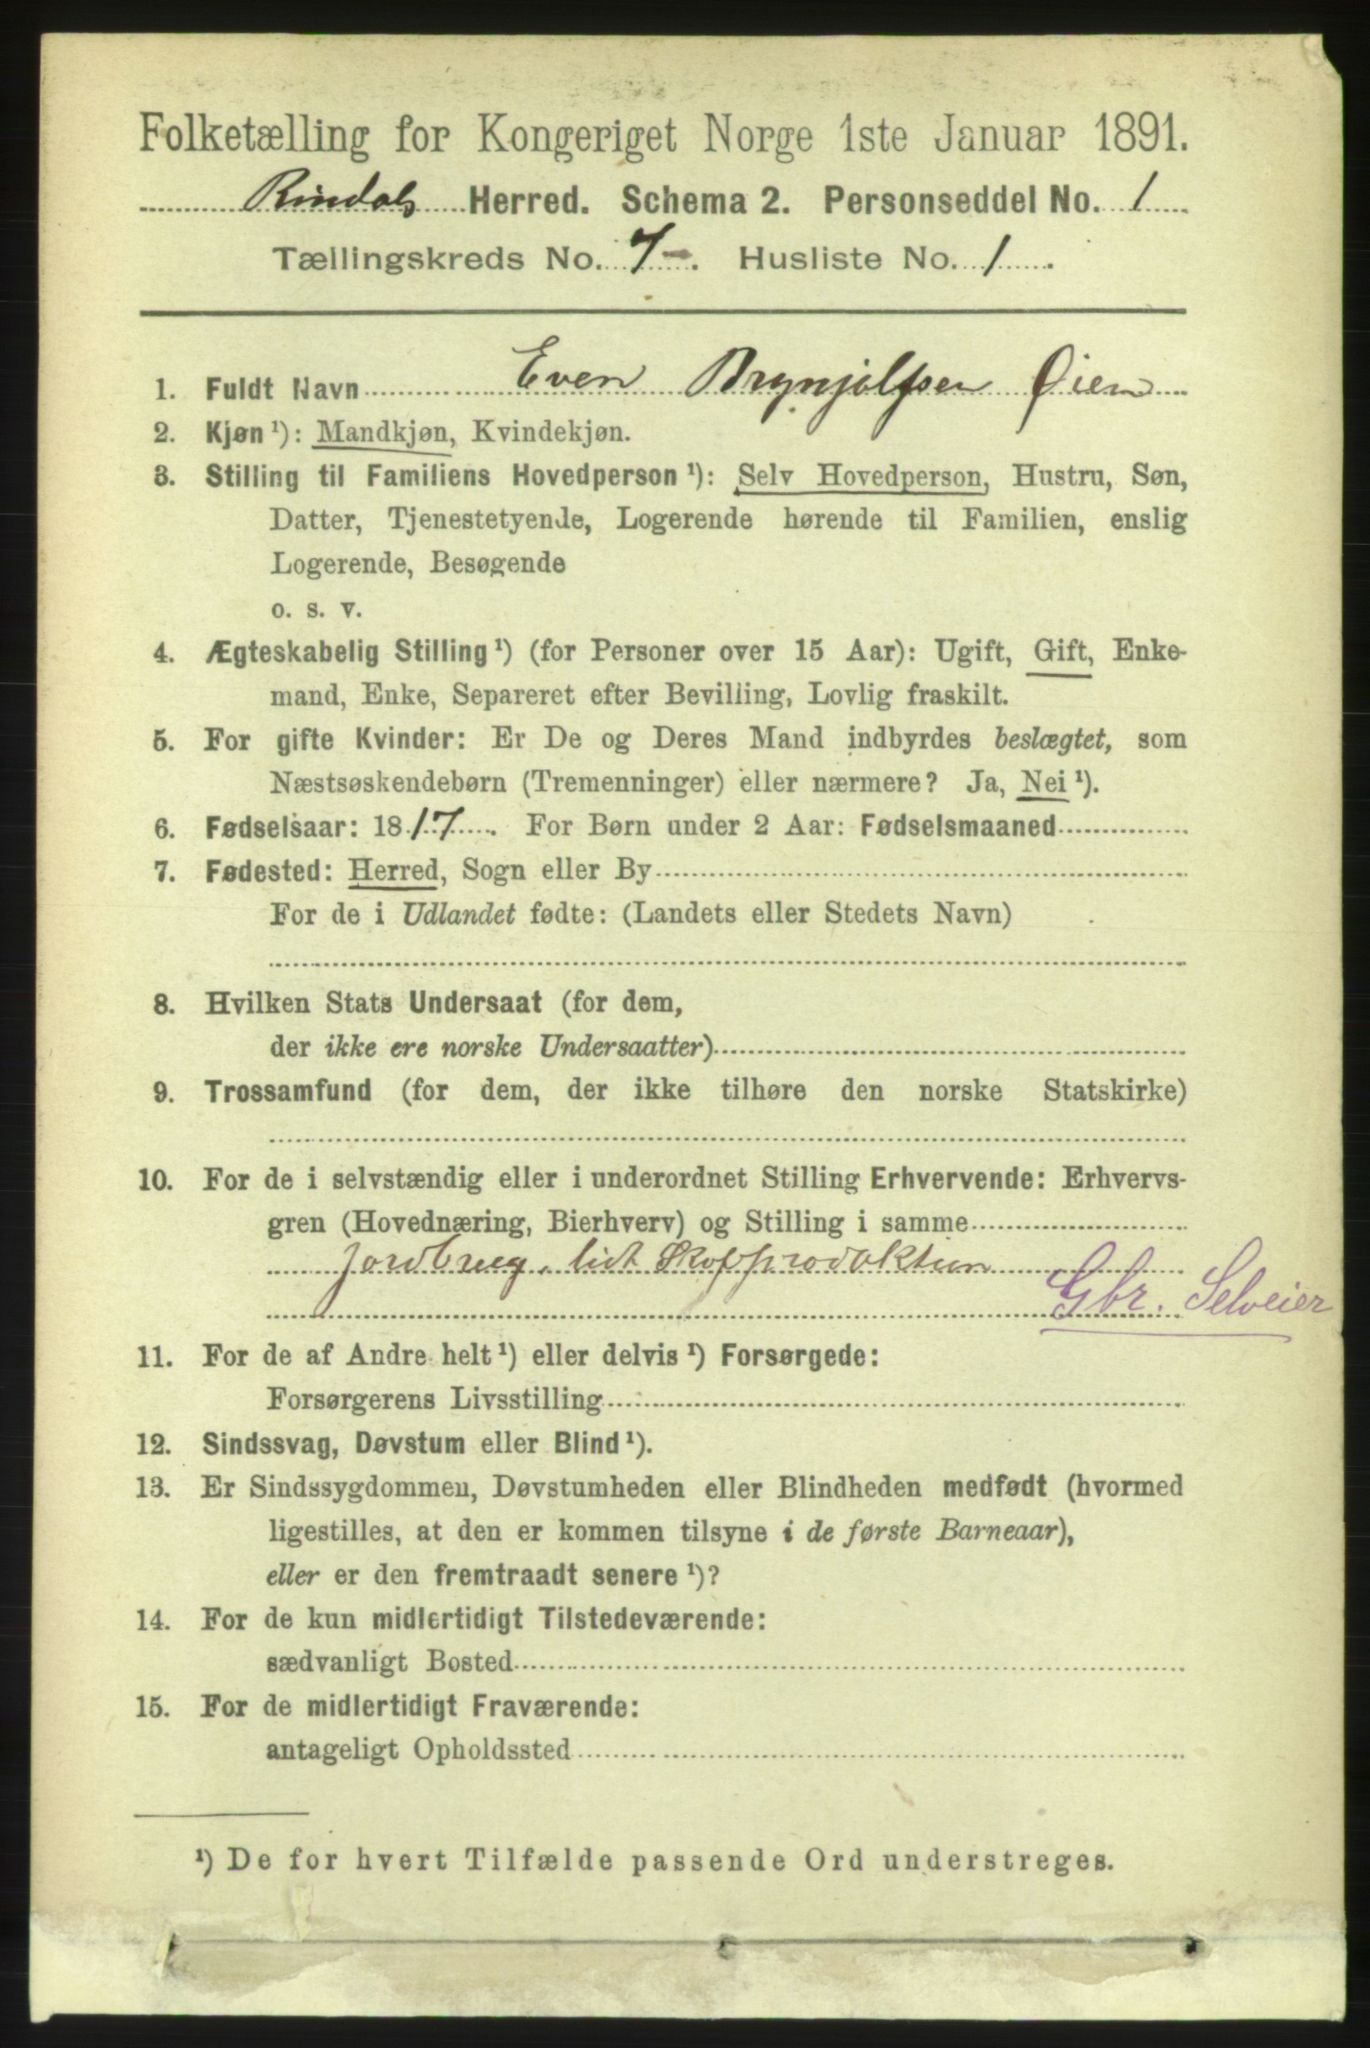 Folketælling for Kongeriget Norge 1ste Januar 1891.
Rindals Herred. Schema 2. Personseddel No. 1
Tællingskreds No. 7. Husliste No. 1.
1. Fuldt Navn Even Brynjolfsen Øien
2. Kjøn ¹): Mandkjøn, Kvindekjøn.
3. Stilling til Familiens Hovedperson ¹): Selv Hovedperson, Hustru, Søn,
Datter, Tjenestetyende, Logerende hørende til Familien, enslig
Logerende, Besøgende
o. s. v.
4. Ægteskabelig Stilling ¹) (for Personer over 15 Aar): Ugift, Gift, Enke-
mand, Enke, Separeret efter Bevilling, Lovlig fraskilt.
5. For gifte Kvinder: Er De og Deres Mand indbyrdes beslægtet, som
Næstsøskendebørn (Tremenninger) eller nærmere? Ja, Nei ¹).
6. Fødselsaar: 1817. For Børn under 2 Aar: Fødselsmaaned
7. Fødested: Herred, Sogn eller By
For de i Udlandet fødte: (Landets eller Stedets Navn)
8. Hvilken Stats Undersaat (for dem,
der ikke ere norske Undersaatter)
9. Trossamfund (for dem, der ikke tilhøre den norske Statskirke)
10. For de i selvstændig eller i underordnet Stilling Erhvervende: Erhvervs-
gren (Hovednæring, Bierhverv) og Stilling i samme
Jordbrug, lidt Skofproduktion
Gbr. Selveier
11. For de af Andre helt ¹) eller delvis ¹) Forsørgede:
Forsørgerens Livsstilling
12. Sindssvag, Døvstum eller Blind ¹).
13. Er Sindssygdommen, Døvstumheden eller Blindheden medfødt (hvormed
ligestilles, at den er kommen tilsyne i de første Barneaar),
eller er den fremtraadt senere ¹)?
14. For de kun midlertidigt Tilstedeværende:
sædvanligt Bosted
15. For de midlertidigt Fraværende:
antageligt Opholdssted
¹) De for hvert Tilfælde passende Ord understreges.